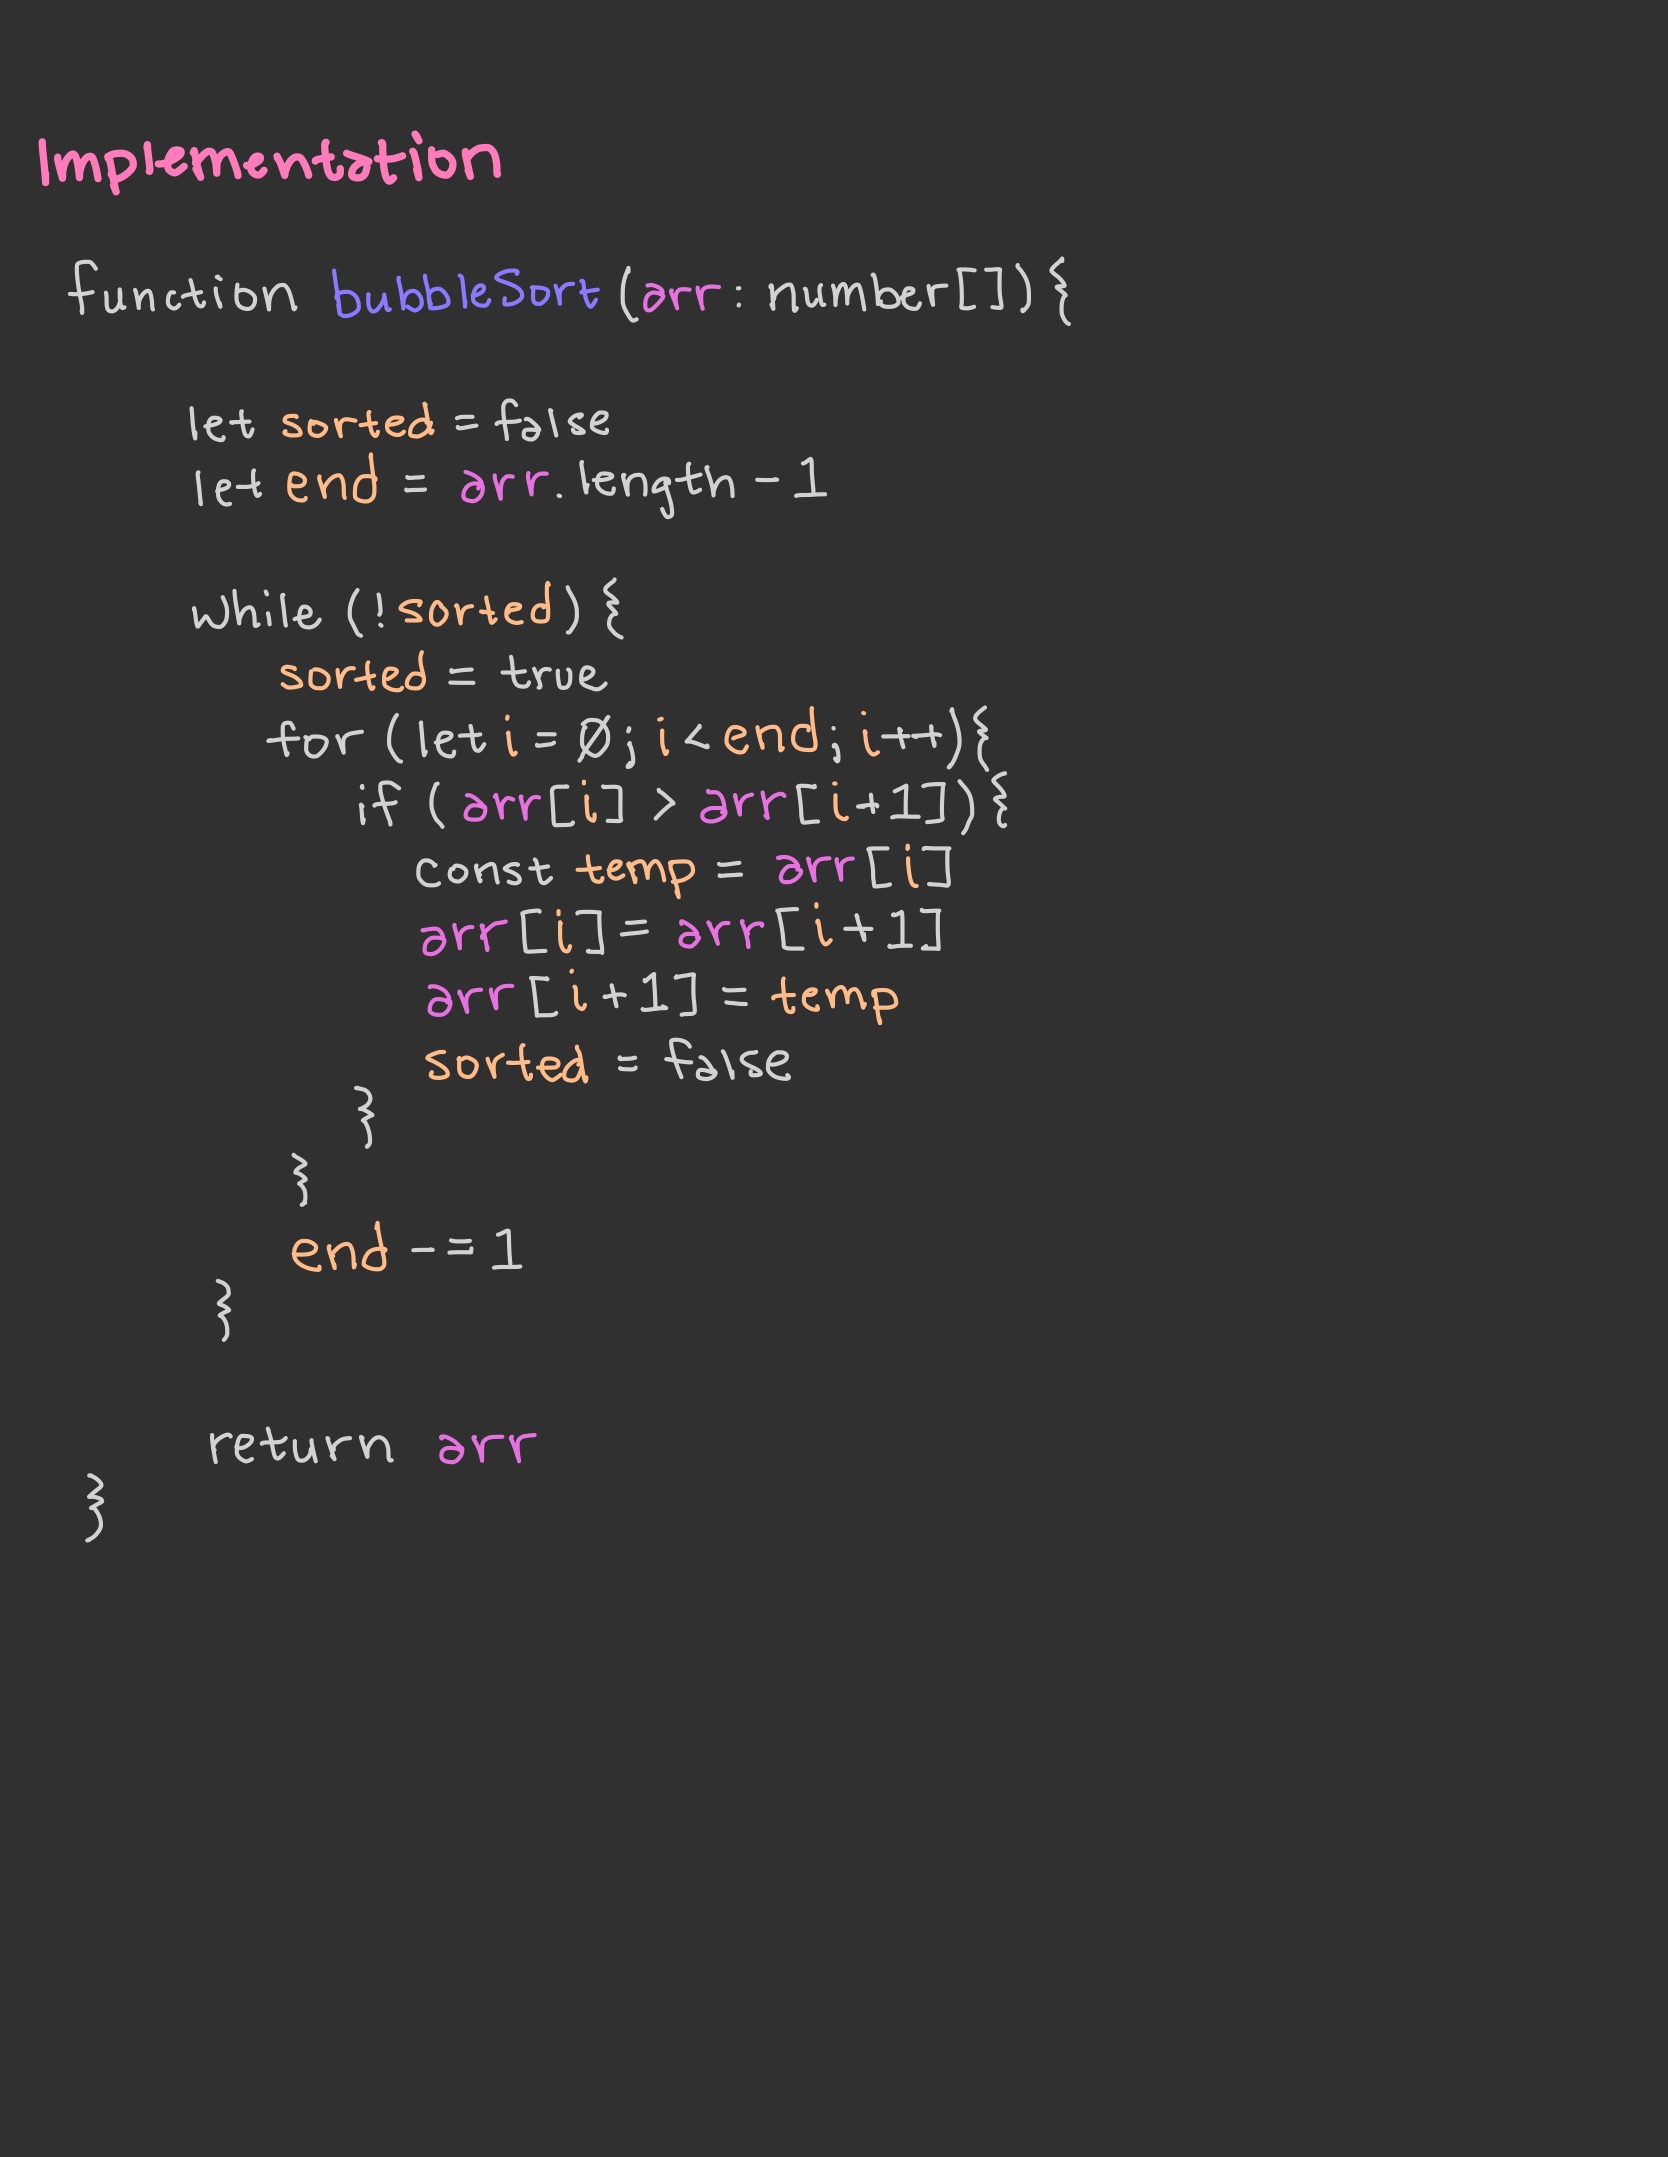 Implementation
function bubbleSort(arr: number[]){
let sorted = false
let end = arr.length - 1
while (!sorted){
sorted = true
for (let i = 0; i < end; i++){
if (arr[i] > arr[i+1]){
const temp = arr[i]
arr[i] = arr[i+1]
arr[i+1] = temp
sorted = false
}
}
end -= 1
}
return arr
}